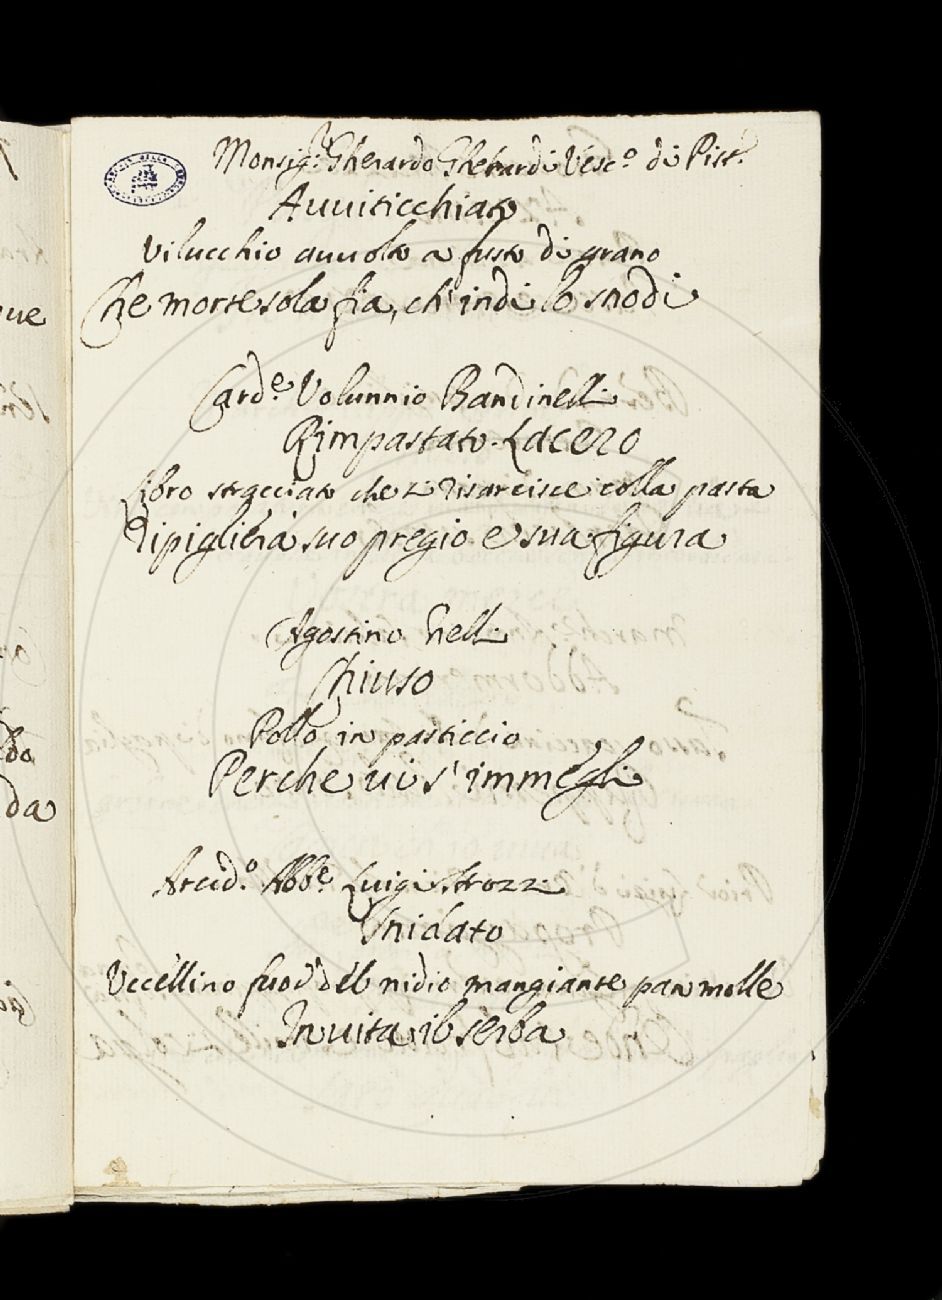 Monsig: Gherardo Gherardi Vesc.o di Pist.
Auuiticchiato
Vilucchio auuolto a fusto di grano
Che morte sola fia, ch' indi lo snodi
Card.e Volunnio Bandinelli
Rimpastato. Lacero
Libro stracciato che si risarcisce colla pasta
Ripiglierà suo pregio e sua figura
Agostino Nelli
Chiuso
Pollo in pasticcio
Perche ui s' immegli
Arcid.o Abb.e Luigi Strozzi
Snidato
Uccellino fuor del nidio mangiante pan molle
In uita il serba
ue
do
da